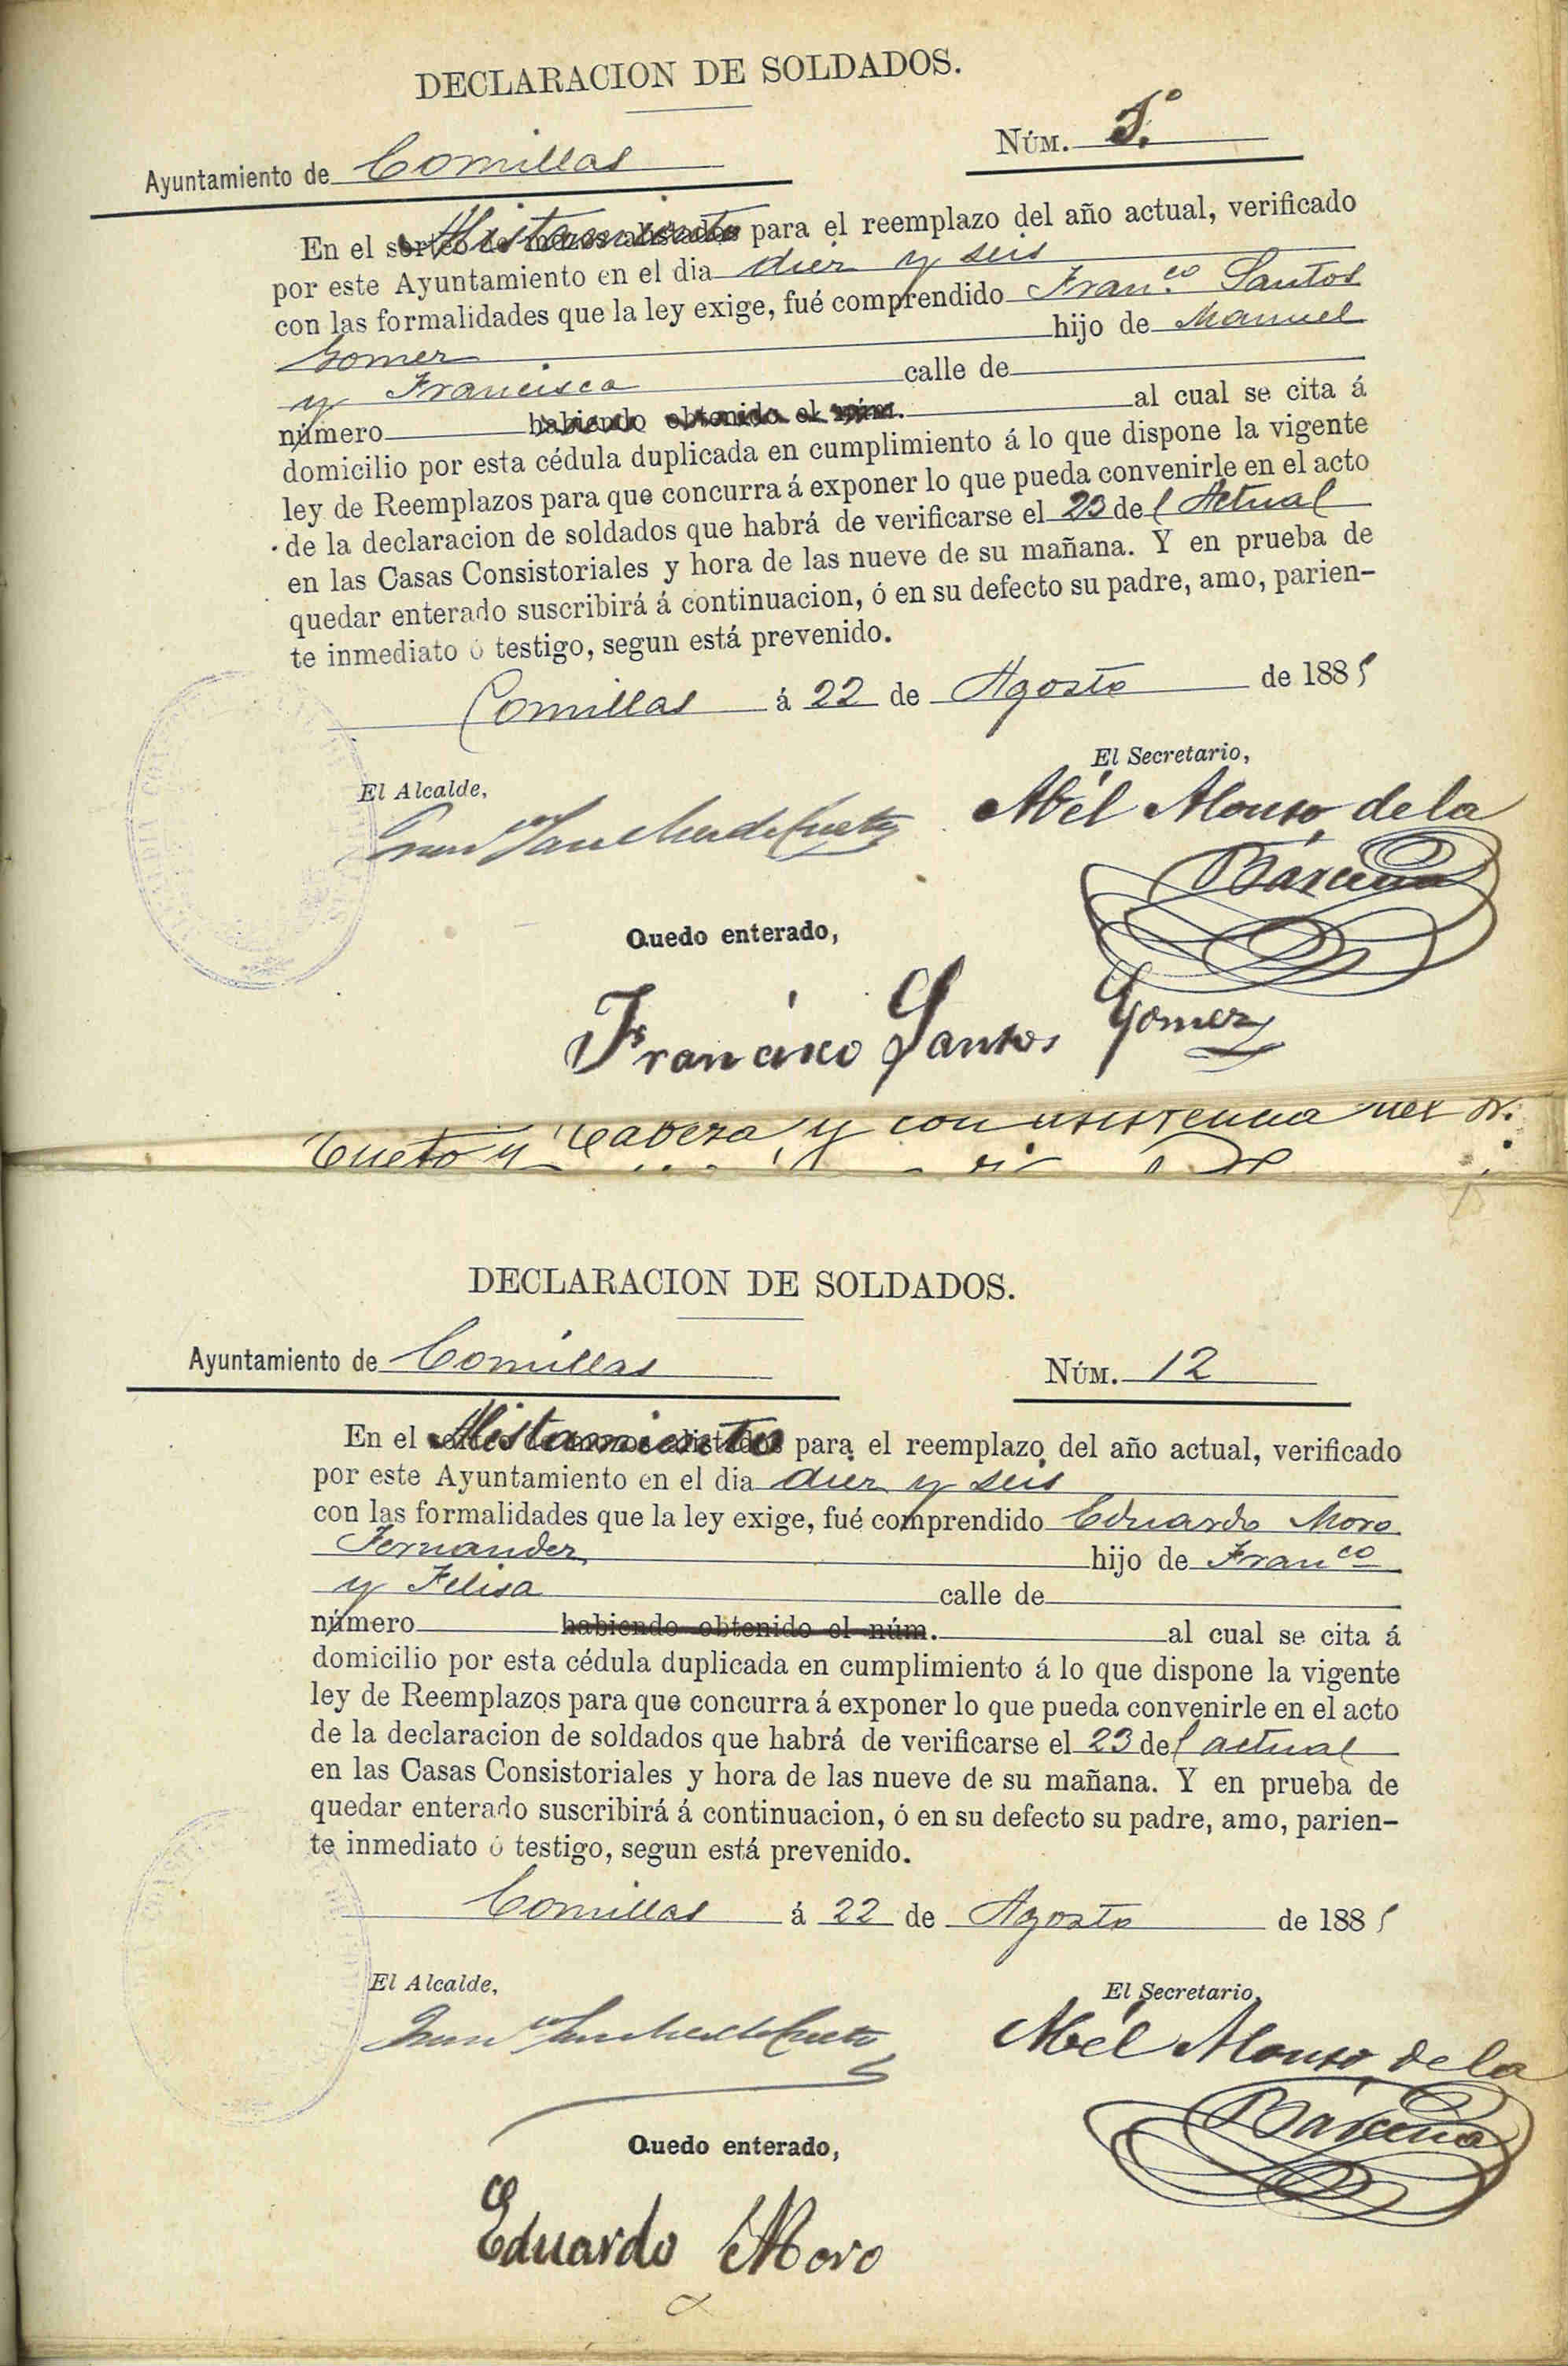 DECLARACION DE SOLDADOS.
Ayuntamiento de Comillas
NÚM. 1.º
En el Alistamiento para el reemplazo del año actual, verificado
por este Ayuntamiento en el dia diez y seis
con las formalidades que la ley exige, fué comprendido Fran.co Santos
Gomez hijo de Manuel
y Francisca calle de
número habiendo obtenido el núm. al cual se cita á
domicilio por esta cédula duplicada en cumplimiento á lo que dispone la vigente
ley de Reemplazos para que concurra á exponer lo que pueda convenirle en el acto
de la declaracion de soldados que habrá de verificarse el 23 del Actual
en las Casas Consistoriales y hora de las nueve de su mañana. Y en prueba de
quedar enterado suscribirá á continuacion, ó en su defecto su padre, amo, parien-
te inmediato ó testigo, segun está prevenido.
Comillas á 22 de Agosto de 1885
El Alcalde,
El Secretario,
Juan Sanchez de Cueto
Abél Alonso de la
Bárcena
Quedo enterado,
Francisco Santos Gomez
Cueto y Cabeza y con asistencia del Sr.
DECLARACION DE SOLDADOS.
Ayuntamiento de Comillas
NÚM. 12
En el Alistamiento para el reemplazo del año actual, verificado
por este Ayuntamiento en el dia diez y seis
con las formalidades que la ley exige, fué comprendido Eduardo Moro
Fernandez hijo de Franco
y Felisa calle de
número habiendo obtenido el núm. al cual se cita á
domicilio por esta cédula duplicada en cumplimiento á lo que dispone la vigente
ley de Reemplazos para que concurra á exponer lo que pueda convenirle en el acto
de la declaracion de soldados que habrá de verificarse el 23 del actual
en las Casas Consistoriales y hora de las nueve de su mañana. Y en prueba de
quedar enterado suscribirá á continuacion, ó en su defecto su padre, amo, parien-
te inmediato ó testigo, segun está prevenido.
Comillas á 22 de Agosto de 1885
El Alcalde,
El Secretario,
Juan Sanchez de Cueto
Abél Alonso de la
Bárcena
Quedo enterado,
Eduardo Moro